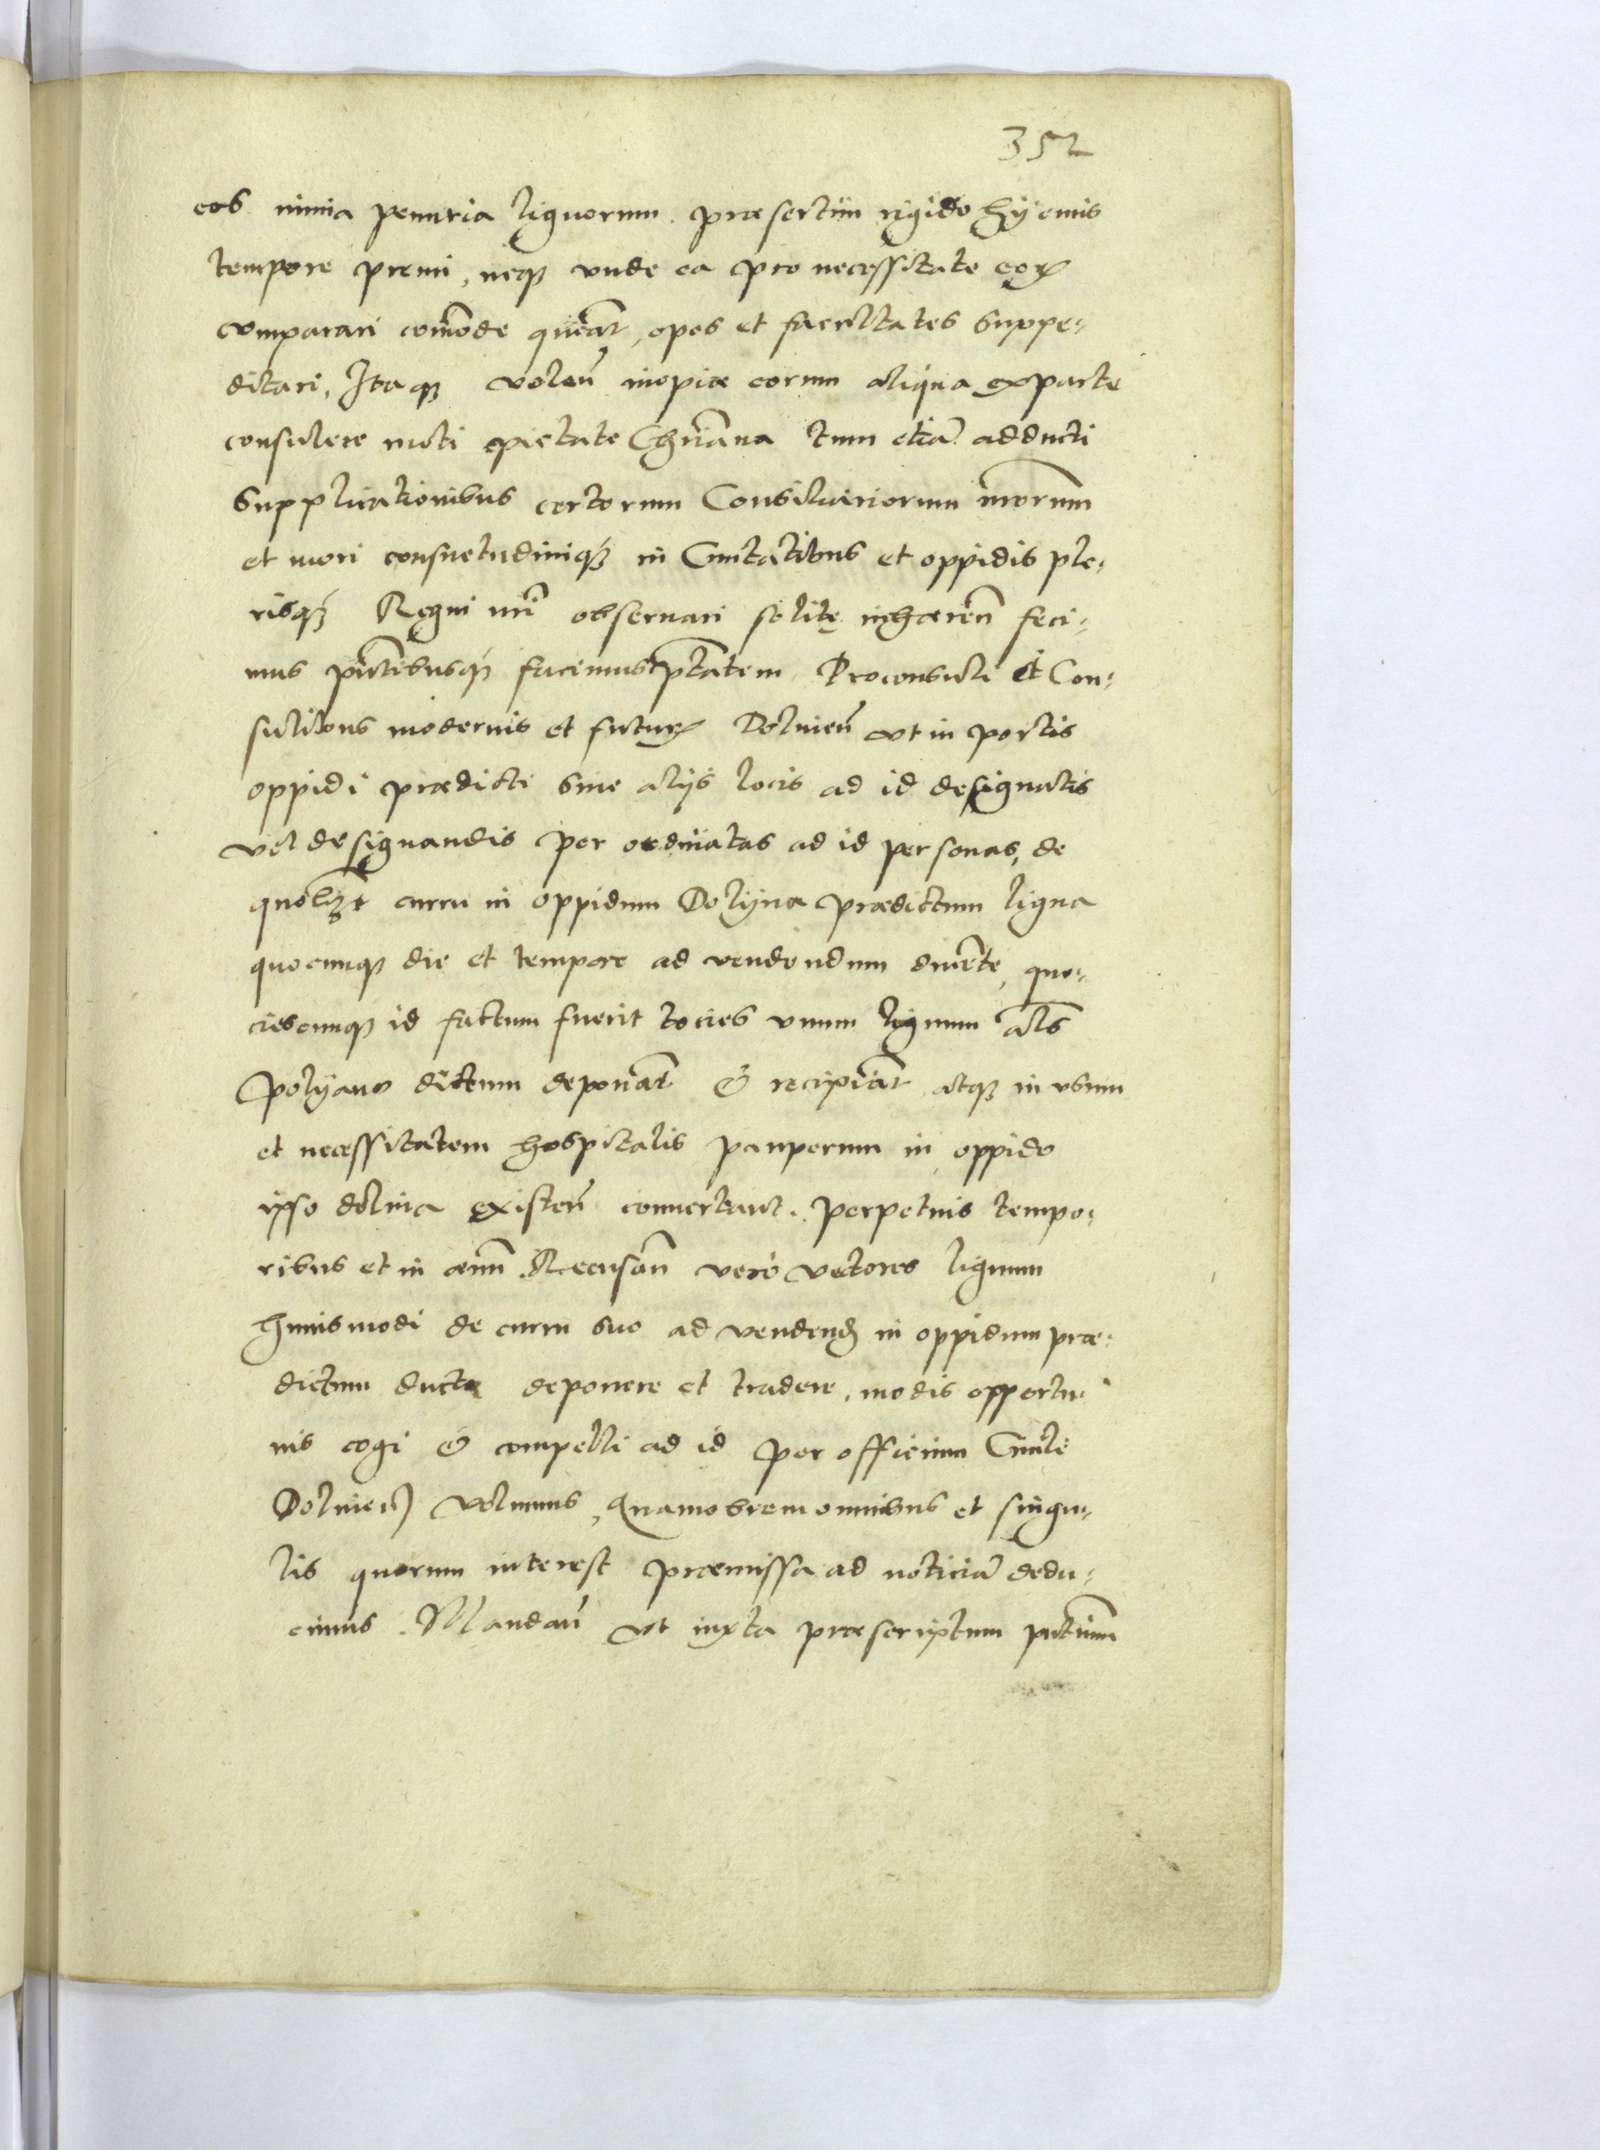 352
eos nimia penuria lignorum. præsertim rigido hÿemis
tempore premi, neq₃ vnde ea pro necessitate eoꝝ
comparari com̃ode queãt, opes et facultates suppe-
ditari, Itaq₃ volen̄ inopiæ eorum aliqua ex parte
consulere moti pietate Chr̃iana tum etiã adducti
Supplicationibus certorum Consiliariorum nr̃orum
et mori consuetudiniq₃ in Ciuitatibus et oppidis ple-
risq₃ Regni nr̃i obseruari solitę inhæren̄ feci-
mus p̃ntibusq₃ facimus ptãtem, Proconsuli et Con-
sulibus modernis et futuꝝ Dolinen̄ vt in portis
oppidi prædicti siue alijs locis ad id designatis
vel designandis per ordinatas ad id personas, de
quolibet curru in oppidum Dolÿna prædictum ligna
quocunq₃ die et tempore ad vendendum ducente, quo-
ciescunq₃ id factum fuerit tocies vnum lignum al̃s
Polÿano dictum deponãt & recipiãt atq₃ in vsum
et necessitatem hospitalis pauperum in oppido
ipso dolina existen̄ conuertant. perpetuis tempo-
ribus et in æuũ. Recusan̄ vero vectores lignum
huiusmodi de curru suo ad vendend in oppidum præ-
dictum ducto deponere et tradere, modis opportu-
nis cogi & compelli ad id per officium Ciuile
Dolinen̄ volumus, Quamobrem omnibus et singu-
lis quorum interest præmissa ad noticiã dedu-
cimus. Mandan̄ vt iuxta præscriptum pñtium